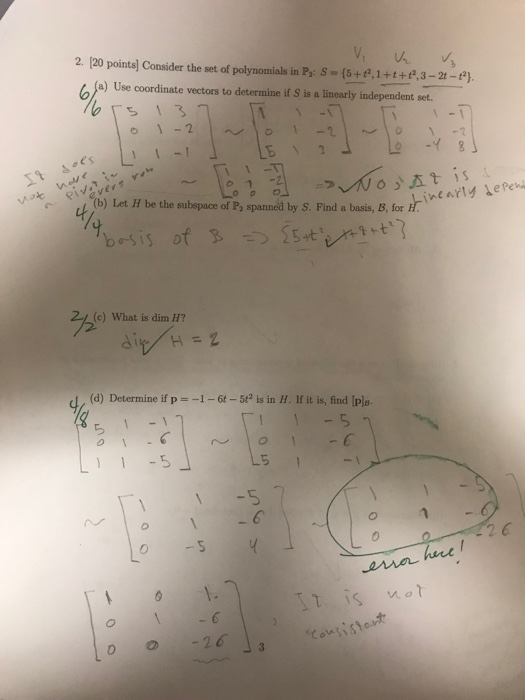 V₁ V₂ V₃
2. [20 points] Consider the set of polynomials in P₂: S = {5 + t², 1 + t + t², 3 − 2t − t²}.
6/6
(a) Use coordinate vectors to determine if S is a linearly independent set.
[5 1 3; 0 1 -2; 1 1 -1] ~ [1 1 -1; 0 1 -2; 5 1 3] ~ [1 1 -1; 0 1 -2; 0 -4 8]
~ [1 1 -1; 0 1 -2; 0 0 0] => No, It is Linearly depen
It does not have a pivot in every row
4/4
(b) Let H be the subspace of P₂ spanned by S. Find a basis, B, for H.
basis of B => {5+t², 1+t+t²}
2/2
(c) What is dim H?
dim H = 2
4/8
(d) Determine if p = −1 − 6t − 5t² is in H. If it is, find [p]_B.
[5 1 -1; 0 1 -6; 1 1 -5] ~ [1 1 -5; 0 1 -6; 5 1 -1]
~ [1 1 -5; 0 1 -6; 0 -5 4] ~ [1 1 -5; 0 1 -6; 0 0 -26]
error here!
[1 0 1; 0 1 -6; 0 0 -26]
It is not
consistant
3